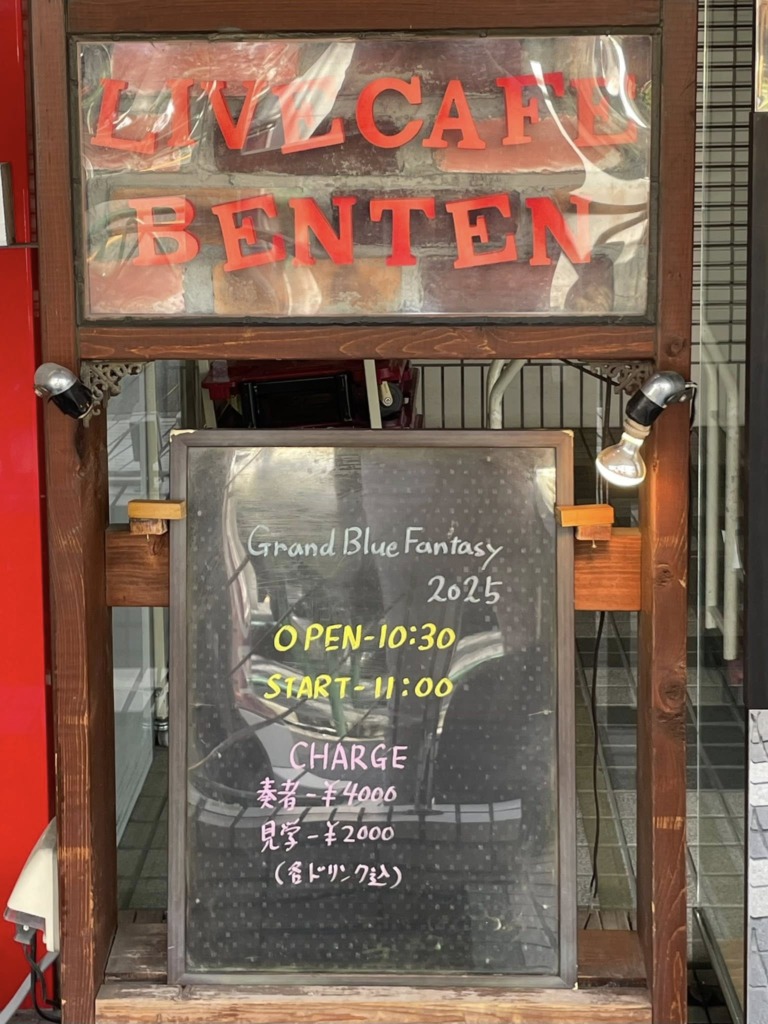 LIVE CAFE
BENTEN
Grand Blue Fantasy
2025
OPEN-10:30
START-11:00
CHARGE
奏者-¥4000
見学-¥2000
(各ドリンク込)